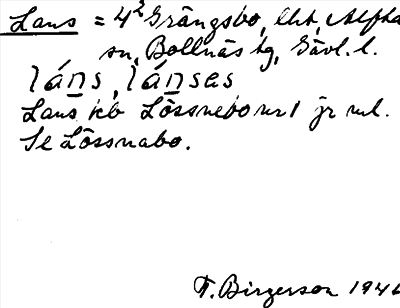 Lans = 4² Grängsbo, lht, Alfta
sn, Bollnäs tg, Gävl. l.
láns, lánses
Lans kb Lössnebo nr 1 jr ml.
Se Lössnabo.
T. Birgerson 194